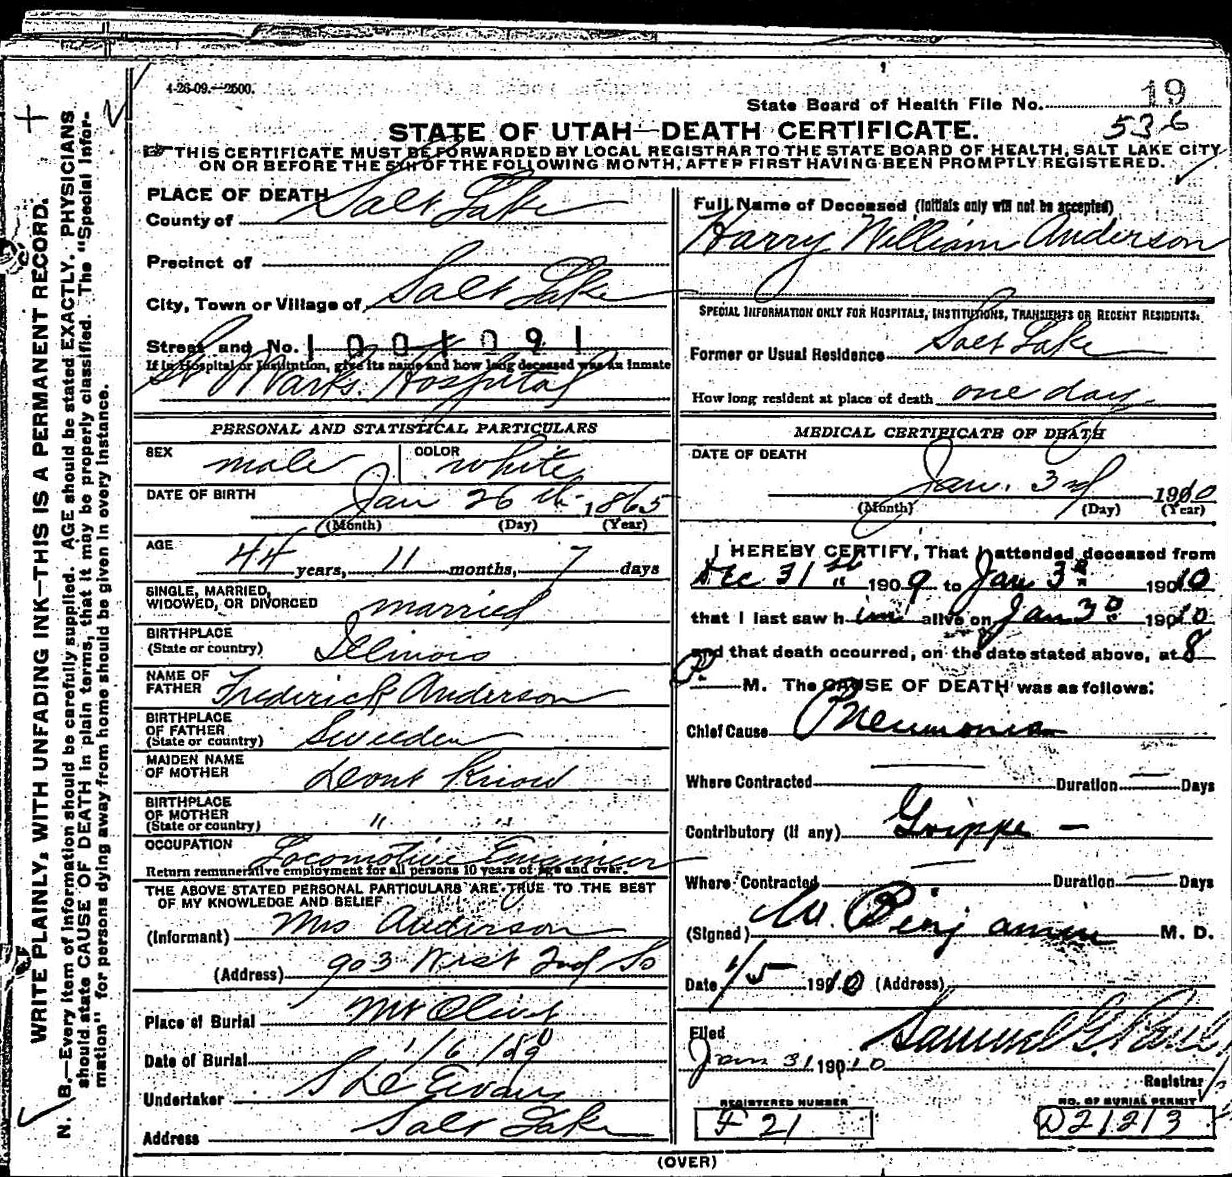 4-26-09.—2500.
State Board of Health File No. 19
536
STATE OF UTAH—DEATH CERTIFICATE.
THIS CERTIFICATE MUST BE FORWARDED BY LOCAL REGISTRAR TO THE STATE BOARD OF HEALTH, SALT LAKE CITY
ON OR BEFORE THE 5TH OF THE FOLLOWING MONTH, AFTER FIRST HAVING BEEN PROMPTLY REGISTERED.
WRITE PLAINLY, WITH UNFADING INK—THIS IS A PERMANENT RECORD.
N. B.—Every item of information should be carefully supplied. AGE should be stated EXACTLY. PHYSICIANS
should state CAUSE OF DEATH in plain terms, that it may be properly classified. The "Special Infor-
mation" for persons dying away from home should be given in every instance.
PLACE OF DEATH
County of Salt Lake
Precinct of
City, Town or Village of Salt Lake
Street and No. 1001091
If in Hospital or Institution, give its name and how long deceased was an inmate
St Marks. Hospital
PERSONAL AND STATISTICAL PARTICULARS
SEX male COLOR white
DATE OF BIRTH Jan 26th 1865
(Month) (Day) (Year)
AGE 44 years, 11 months, 7 days
SINGLE, MARRIED,
WIDOWED, OR DIVORCED married
BIRTHPLACE
(State or country) Illinois
NAME OF
FATHER Frederick Anderson
BIRTHPLACE
OF FATHER
(State or country) Sweeden
MAIDEN NAME
OF MOTHER Dont Know
BIRTHPLACE
OF MOTHER
(State or country) " "
OCCUPATION Locomotive Engineer
Return remunerative employment for all persons 10 years of age and over.
THE ABOVE STATED PERSONAL PARTICULARS ARE TRUE TO THE BEST
OF MY KNOWLEDGE AND BELIEF
(Informant) Mrs Anderson
(Address) 903 West 2nd So
Place of Burial Mt Olivet
Date of Burial 1/6/
Undertaker Evans
Address Salt Lake
Full Name of Deceased (Initials only will not be accepted)
Harry William Anderson
SPECIAL INFORMATION ONLY FOR HOSPITALS, INSTITUTIONS, TRANSIENTS OR RECENT RESIDENTS.
Former or Usual Residence Salt Lake
How long resident at place of death one day
MEDICAL CERTIFICATE OF DEATH
DATE OF DEATH
Jan. 3rd 1910
(Month) (Day) (Year)
I HEREBY CERTIFY, That I attended deceased from
Dec 31st 1909 to Jan 3d 1910
that I last saw him alive on Jan 3d 1910
and that death occurred, on the date stated above, at 8
P. M. The CAUSE OF DEATH was as follows:
Chief Cause Pneumonia
Where Contracted — Duration — Days
Contributory (if any) Grippe —
Where Contracted — Duration — Days
(Signed) W. Benjamin M. D.
Date 1/5 1910 (Address)
Filed
Jan 31 1910 Samuel G. Paul
Registrar
REGISTERED NUMBER
F 21
NO. OF BURIAL PERMIT
D21213
(OVER)